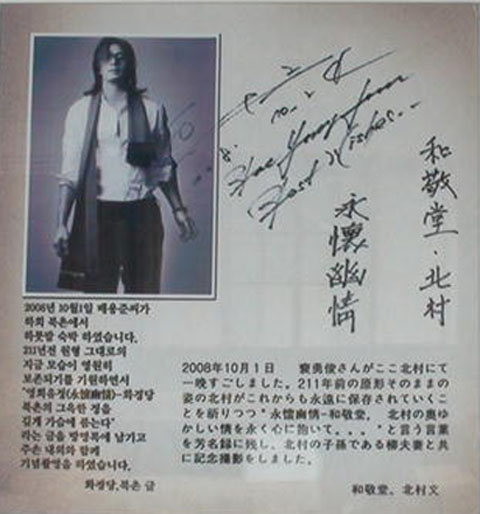 Best Wishes..
和敬堂·北村
永懷幽情
2008년 10월1일 배용준씨가
하회 북촌에서
하룻밤 숙박 하였습니다.
211년전 원형 그대로의
지금 모습이 영원히
보존되기를 기원하면서
"영회유정(永懷幽情)-화경당
북촌의 그윽한 정을
길게 가슴에 품는다"
라는 글을 방명록에 남기고
주손 내외와 함께
기념촬영을 하였습니다.
화경당,북촌 글
2008年10月1日 裵勇俊さんがここ北村にて
一晩すごしました。211年前の原形そのままの
姿の北村がこれからも永遠に保存されていくこ
とを祈りつつ"永懷幽情-和敬堂, 北村の奥ゆ
かしい情を永く心に抱いて。。。"と言う言葉
を芳名録に残し、北村の子孫である柳夫妻と共
に記念撮影をしました。
和敬堂、北村文